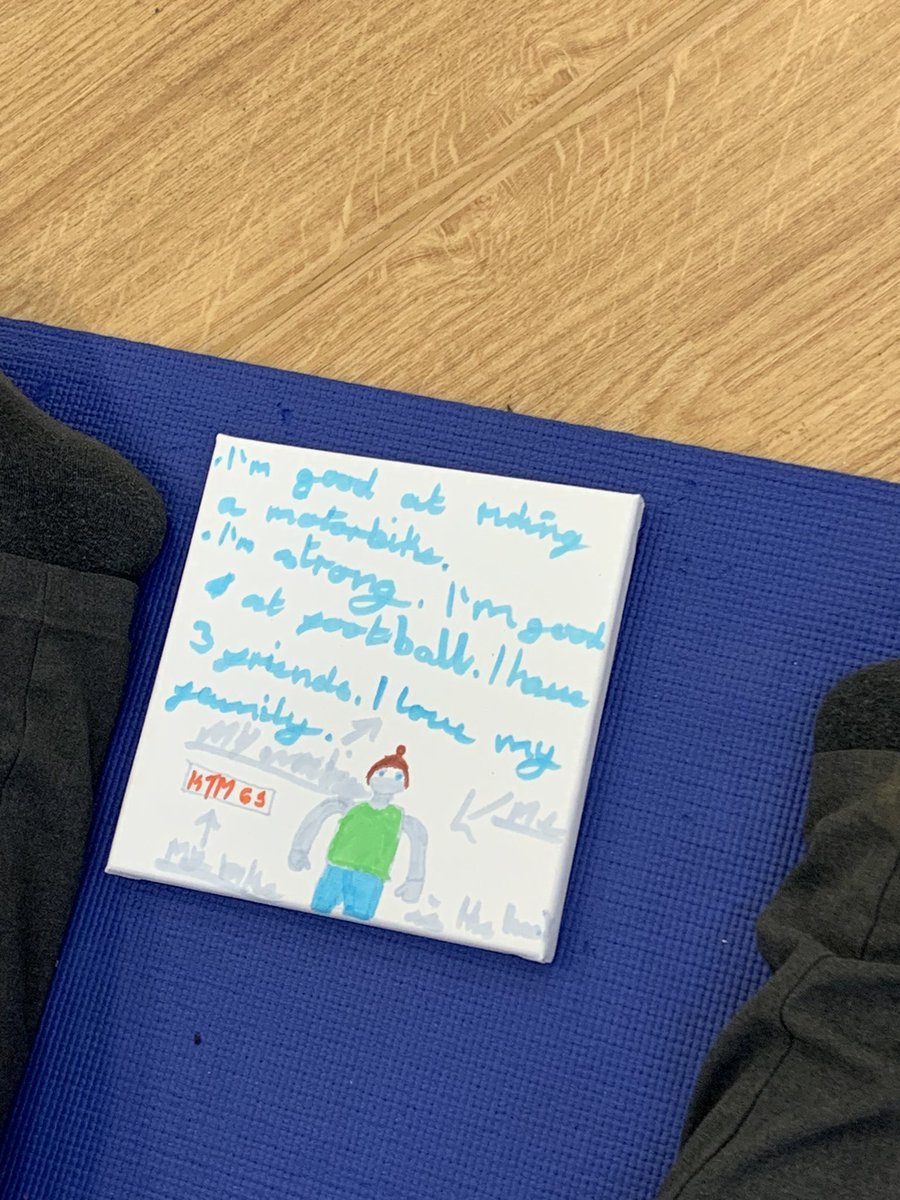 .I'm good at riding
a motorbike.
.I'm strong. I'm good
at football. I have
3 friends. I love my
family.
My
KTM 69
Me
My bike
is the